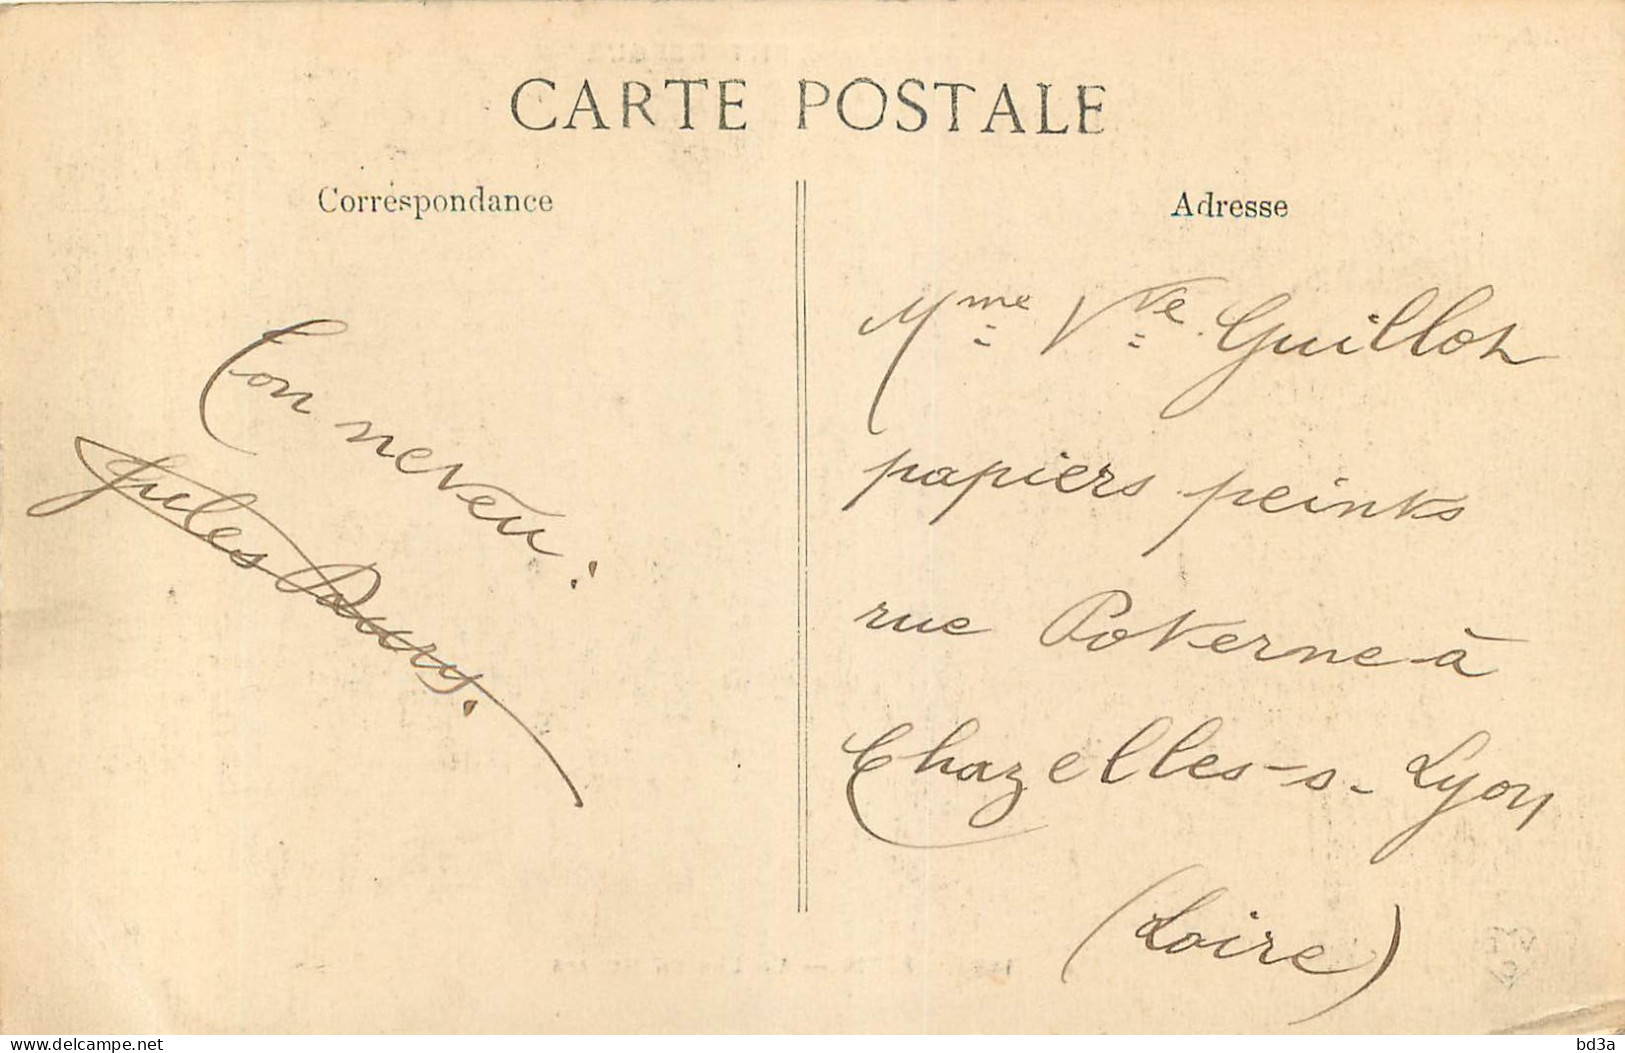 CARTE POSTALE
Correspondance
Adresse
Ton neveu :
Jules
Mme Vve Guillot
papiers peints
rue Poterne à
Chazelles-s-Lyon
(Loire)
delcampe.net
bd3a